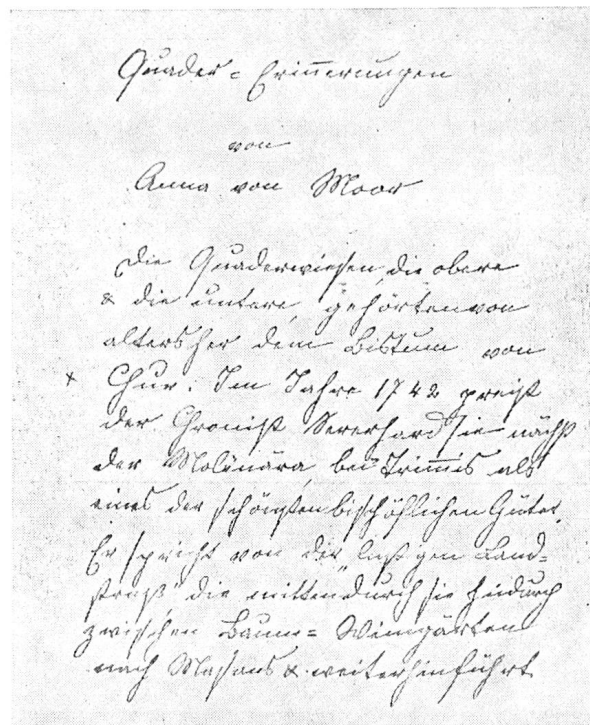 Quader = Erinnerungen
von
Anna von Moor
Die Quaderwiesen, die obere
& die untere, gehörten von
altersher dem Bistum von
x Chur. Im Jahre 1742 preist
der Chronist Sererhard sie nächst
der Molinära, bei Trimmis als
eines der schönsten bischöflichen Güter.
Er spricht von der Land=
straß, die mitten durch sie hindurch
zwischen Baum= Weingärten
nach Masans & weiterhin führt.